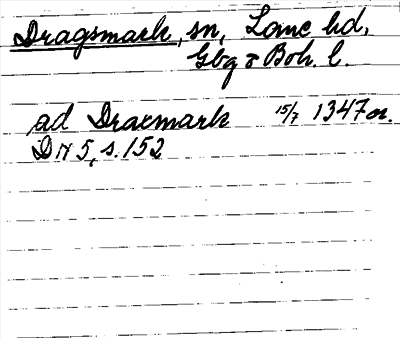 Dragsmark, sn, Lane hd,
Gbg o Boh. l.
ad Dracmark 15/7 1347 or.
DN 5, s. 152